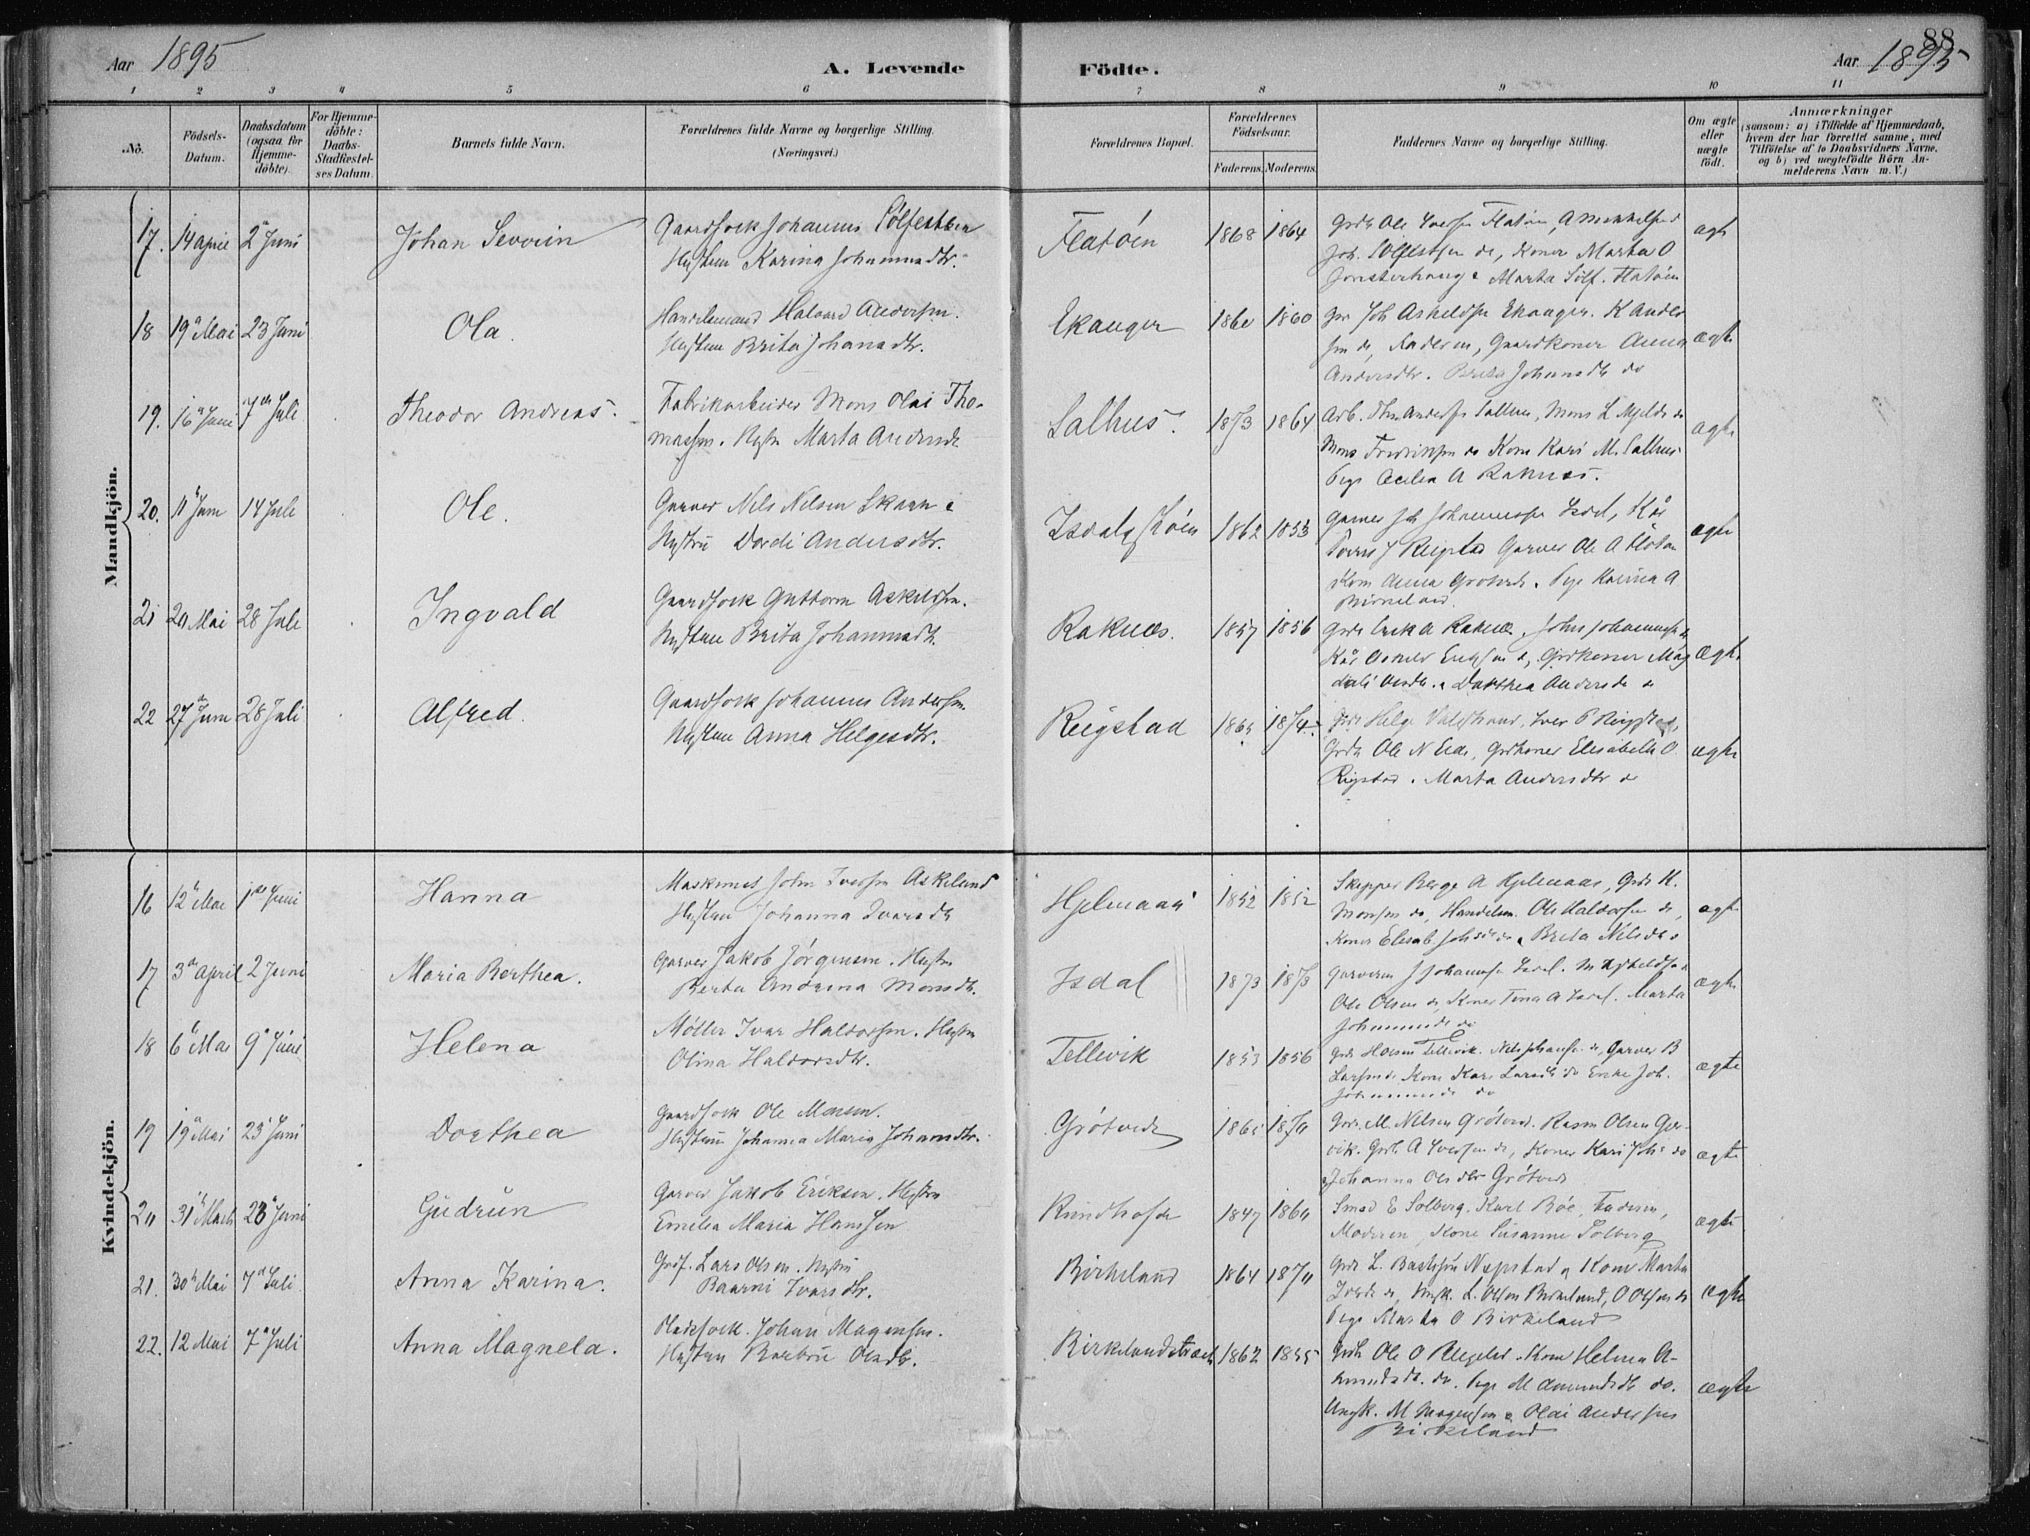 88
Aar 1895
A. Levende
Födte.
Aar 1895
1 2 3 4 5 6 7 8 9 10 11
No.
Födsels-
Datum.
Daabsdatum
(ogsaa for
Hjemme-
döbte).
For Hjemme-
döbte:
Daabs-
Stadfæstel-
ses Datum.
Barnets fulde Navn.
Forældrenes fulde Navne og borgerlige Stilling.
(Næringsvei.)
Forældrenes Bopæl.
Forældrenes
Födselsaar.
Faderens. Moderens.
Faddernes Navne og borgerlige Stilling.
Om ægte
eller
uægte
født.
Anmærkninger
(saasom: a) i Tilfælde af Hjemmedaab,
hvem der har forrettet samme, med
Tilföielse af to Daabsvidners Navne,
og b) ved uægtefödte Börn An-
melderens Navn m. V.)
Mandkjön.
17. 14 April 2 Juni
Johan Severin
Gaardfork Johannes Solfestsen
Hustru Karina Johannesdtr.
Flatöen
1868 1864
Grdb Ole Iversen Flatöen,
Joh. Solfestsen do, Koner Marta O
Marta Solf. Flatöen
ægte
18 19 Mai 23 Juni
Ola.
Handelsmand Halvard Andersen.
Hustru Brita Johansdtr.
Ekanger
1860 1860
Joh Askeldsen Ekanger. K Ander
sen do, Faderen, Gaardkoner Anna
Andersdtr. Brita Johansdtr do
ægte
19. 16 Juni 7de Juli
Theodor Andreas.
Fabrikarbeider Mons Olai Tho-
massen. Hustru Marta Andersdtr
Salhus.
1873 1864
Arb. Andersen Salhus, Mons L Mjelde do
Mons Fredriksen do Kone Kari M. Salhus
Pige Cecilia A Raknes.
ægte
20. 11 Juni 14 Juli
Ole.
Garver Nels Nelsen Skaar
Hustru Dordi Andersdtr.
Isdalstöen
1862 1853
Garver Joh Johannessen Isdal, Kår
J Reigstad Garver Ole A Flöten
Kone Anna Grotvedt. Pige Karina A
Birkeland.
ægte
21 20 Mai 28 Juli
Ingvald
Gaardfork Guttorm Askildsen.
Hustru Brita Johannesdtr.
Raknes.
1857 1856
Grdb Erik A Raknes. Johs Johannessen do
Kår Askild Eriksen do, Grdkoner Mag
dali Olsdtr. Dorthea Andersdtr do
ægte
22 27 Juni 28 Juli
Alfred.
Gaardfork Johannes Andersen
Hustru Anna Helgesdtr.
Reigstad
1865 1874
Grdb Helge Valestrand, Iver P Reigstad,
Grdb Ole N Eide, Grdkoner Elisabeth O.
Rigstad. Marta Andersdtr do
ægte
Kvindekjön.
16 12 Mai 1ste Juni
Hanna
Maskinist John Iversen Askeland
Hustru Johanna Ivarsdtr
Hjelmaas
1852 1852
Skipper Berge A Hjelmaas, Grdb H.
Monsen do, Handelsm. Ole Haldorsen do,
Koner Elisab Johsdtr do Brita Nilsdtr
ægte
17 3 April 2 Juni
Maria Berthea.
Garver Jakob Jørgensen. Hustru
Berta Andrina Monsdtr.
Isdal
1873 1873
Garveren J Johannsen Isdal. M Askeldsen
Ole Olsen do, Koner Tina A Isdal. Marta
Johannesdtr do
ægte
18 6 Mai 9 Juni
Helena
Møller Ivar Haldorsen. Hustru
Olina Haldorsdtr.
Tellevik
1853 1856
Grdb Tellevik. Nils Johansen do, Garver B
Larsen do Kone Kari Larsdtr do Enke Joh.
Johannesdtr do
ægte
19 19 Mai 23 Juni
Dorthea
Gaardfork Ole Monsen.
Hustru Johanna Maria Johannsdtr.
Grötvedt
1865 1870
Grdb. M. Nilsen Grötvedt. Rasm Olsen Gjer-
vik. Grdb A Iversen do, Koner Kari Johs do
Johanna Olsdtr Grötvedt
ægte
20 31 Marts 23 Juni
Gudrun
Garver Jakob Eriksen. Hustru
Emilia Maria Hanssen
Rundhofde
1847 1860
Smed E Solberg. Karl Böe, Faderen,
Moderen, Kone Susanne Solberg
ægte
21. 30 Mai 7 Juli
Anna Karina.
Grdf. Lars Olsen. Hustru
Ivarsdtr.
Birkeland
1864 1870
Grdb L. Nepstad og Kone Marta
Ungk. L. Olsen Birkeland, O Olsen do
Pige Marta O Birkeland
ægte
22. 12 Mai 7 Juli
Anna Magnela.
Pladsfork. Johan Magnesen.
Hustru Barbru Olsdtr.
Birkelandstræet
1862 1855
Grdb Ole O Reigstad. Kone Helena A-
mundsdtr. do. Pige M Amundsdtr do.
Ungk. M Magnesen Olai Andersen
Birkeland
ægte